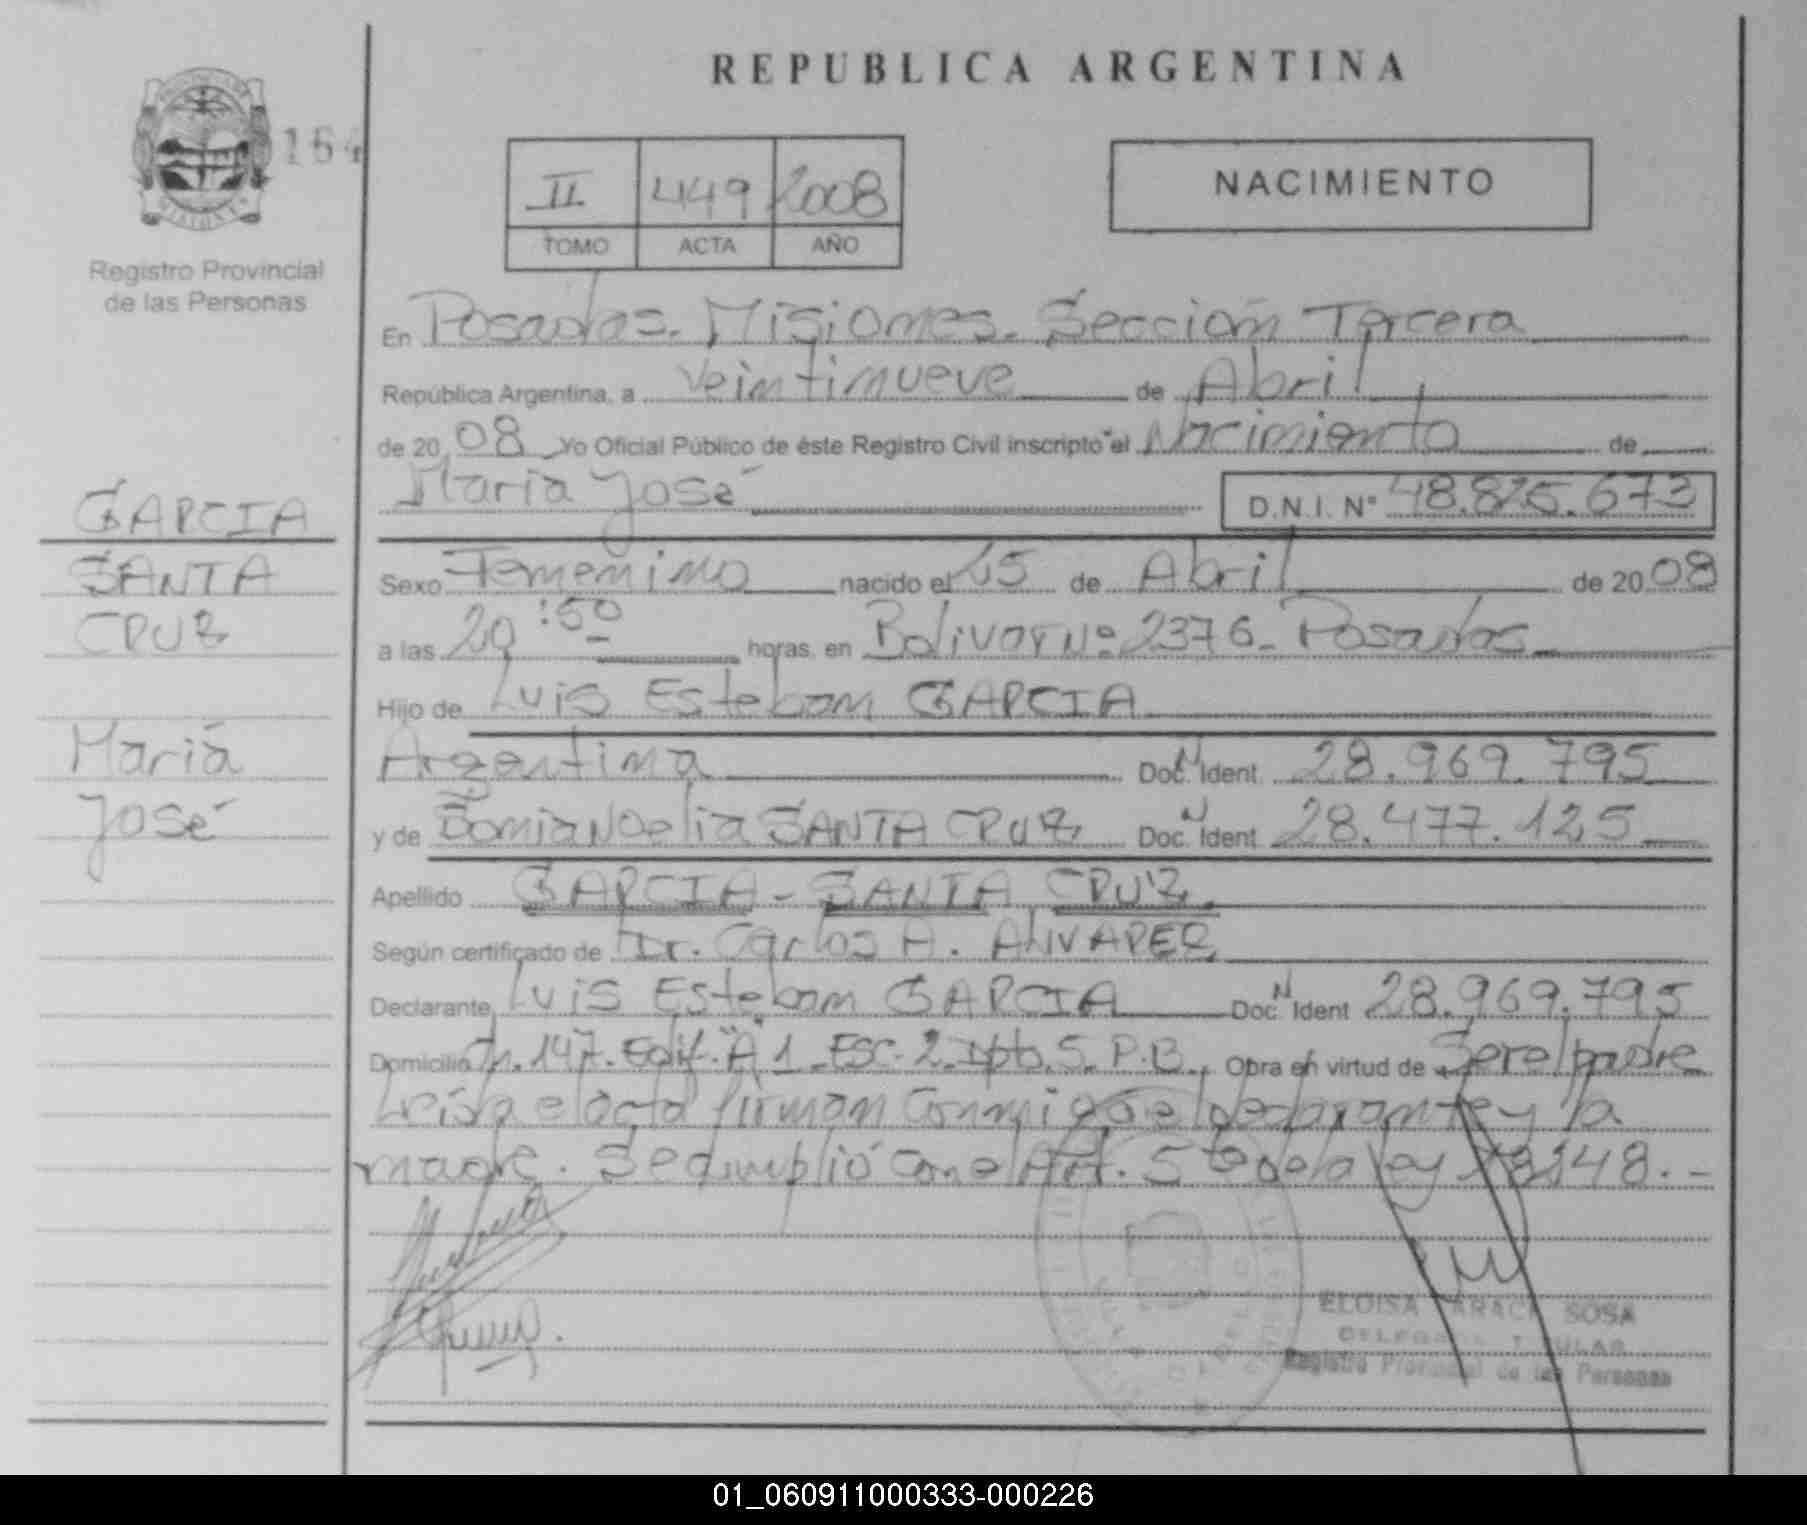 REPUBLICA ARGENTINA
164
II 449 2008
TOMO ACTA AÑO
NACIMIENTO
Registro Provincial
de las Personas
En Posadas. Misiones. Sección Tercera
República Argentina, a Veintinueve de Abril
de 20 08 Yo Oficial Público de éste Registro Civil inscripto el Nacimiento de
María José D.N.I. Nº 48.825.673
GARCIA
SANTA
CRUZ
María
José
Sexo Femenino nacido el 25 de Abril de 20 08
a las 20:50 horas, en Bolivar Nº 2376- Posadas
Hijo de Luis Esteban GARCIA
Argentina Doc. N Ident. 28.969.795
y de Sonia Noelia SANTA CRUZ Doc. N Ident. 28.477.125
Apellido GARCIA - SANTA CRUZ.
Según certificado de Dr. Carlos A. ALIVARER
Declarante Luis Esteban GARCIA Doc. N Ident 28.969.795
Domicilio Ch. 147. Edif. "A" 1 - ESC. 2 - Dpto. 5. P.B. Obra en virtud de Ser el padre
Leída el acta firman Conmigo el declarante y la
madre. Se cumplió con el Art. 5 to de la ley 18248.-
ELOISA ARACI SOSA
DELEGADA TITULAR
Registro Provincial de las Personas
01_060911000333-000226